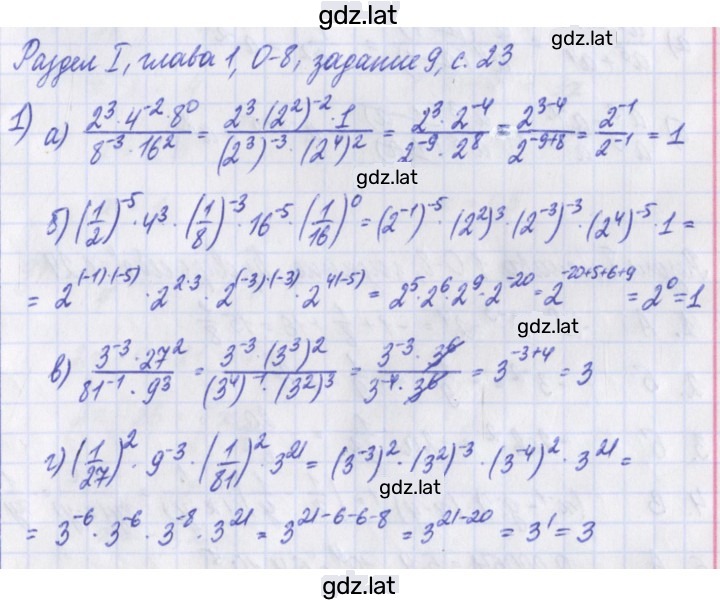 gdz.lat
gdz.lat
Раздел I, глава 1, О-8, задание 9, с. 23
1) а) \frac{2^3 · 4^{-2} · 8^0}{8^{-3} · 16^2} = \frac{2^3 · (2^2)^{-2} · 1}{(2^3)^{-3} · (2^4)^2} = \frac{2^3 · 2^{-4}}{2^{-9} · 2^8} = \frac{2^{3-4}}{2^{-9+8}} = \frac{2^{-1}}{2^{-1}} = 1
gdz.lat
б) (\frac{1}{2})^{-5} · 4^3 · (\frac{1}{8})^{-3} · 16^{-5} · (\frac{1}{16})^0 = (2^{-1})^{-5} · (2^2)^3 · (2^{-3})^{-3} · (2^4)^{-5} · 1 =
= 2^{(-1)·(-5)} · 2^{2·3} · 2^{(-3)·(-3)} · 2^{4(-5)} = 2^5 · 2^6 · 2^9 · 2^{-20} = 2^{-20+5+6+9} = 2^0 = 1
gdz.lat
в) \frac{3^{-3} · 27^2}{81^{-1} · 9^3} = \frac{3^{-3} · (3^3)^2}{(3^4)^{-1} · (3^2)^3} = \frac{3^{-3} · 3^6}{3^{-4} · 3^6} = 3^{-3+4} = 3
г) (\frac{1}{27})^2 · 9^{-3} · (\frac{1}{81})^2 · 3^{21} = (3^{-3})^2 · (3^2)^{-3} · (3^{-4})^2 · 3^{21} =
gdz.lat
= 3^{-6} · 3^{-6} · 3^{-8} · 3^{21} = 3^{21-6-6-8} = 3^{21-20} = 3^1 = 3
gdz.lat